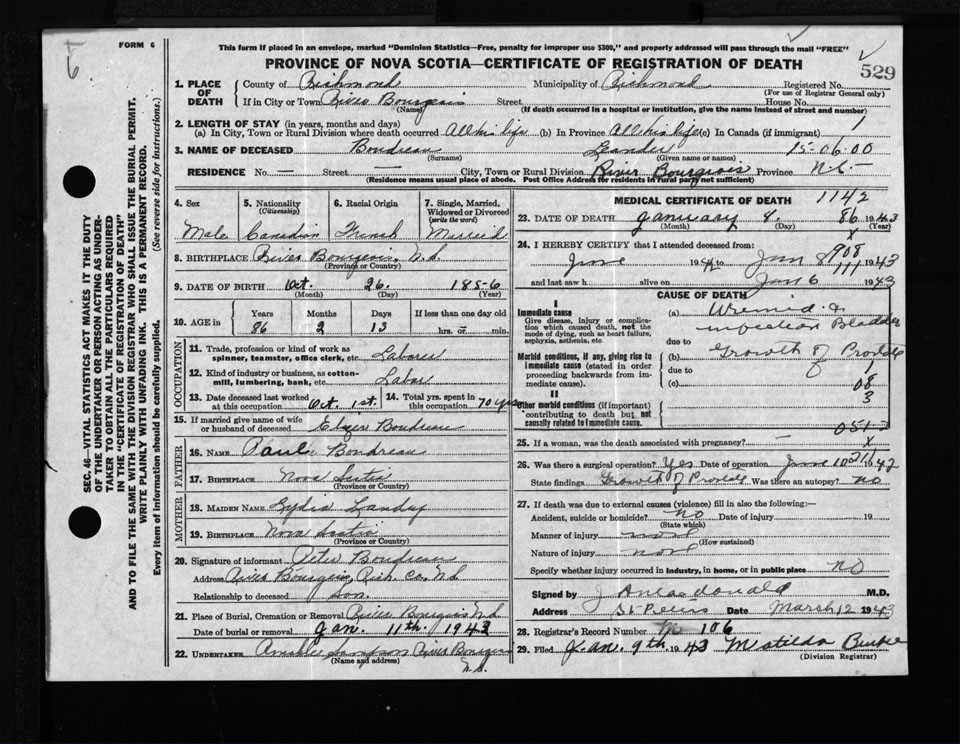 FORM 6
This form if placed in an envelope, marked "Dominion Statistics—Free, penalty for improper use $300," and properly addressed will pass through the mail "FREE"
PROVINCE OF NOVA SCOTIA—CERTIFICATE OF REGISTRATION OF DEATH
529
1. PLACE OF DEATH
County of Richmond Municipality of Richmond Registered No.
(For use of Registrar General only)
If in City or Town River Bourgeois Street House No.
(Name) (If death occurred in a hospital or institution, give the name instead of street and number)
2. LENGTH OF STAY (in years, months and days)
(a) In City, Town or Rural Division where death occurred All his life (b) In Province All his life (c) In Canada (if immigrant) 1
3. NAME OF DECEASED Boudreau Leander 15-06.00
(Surname) (Given name or names)
RESIDENCE No. — Street City, Town or Rural Division River Bourgeois Province N.S.-
(Residence means usual place of abode. Post Office Address for residents in rural parts not sufficient)
4. Sex
Male
5. Nationality (Citizenship)
Canadian
6. Racial Origin
French
7. Single, Married, Widowed or Divorced (write the word)
Married
8. BIRTHPLACE River Bourgeois, N.S.
(Province or Country)
9. DATE OF BIRTH Oct. 26. 1856
(Month) (Day) (Year)
10. AGE in Years Months Days If less than one day old
86 2 13 hrs. or min.
OCCUPATION
11. Trade, profession or kind of work as spinner, teamster, office clerk, etc. Laborer
12. Kind of industry or business, as cotton-mill, lumbering, bank, etc. Labor
13. Date deceased last worked at this occupation Oct. 1st.
14. Total yrs. spent in this occupation. 70 yrs
15. If married give name of wife or husband of deceased Boudreau
FATHER
16. NAME Paul Boudreau
17. BIRTHPLACE Nova Scotia
(Province or Country)
MOTHER
18. MAIDEN NAME Lydia Landry
19. BIRTHPLACE Nova Scotia
(Province or Country)
20. Signature of informant Peter Boudreau
Address River Bourgeois, Rich. Co. N.S.
Relationship to deceased son.
21. Place of Burial, Cremation or Removal River Bourgeois N.S.
Date of burial or removal Jan. 11th. 1943
22. UNDERTAKER Sampson River Bourgeois
(Name and address) N.S.
MEDICAL CERTIFICATE OF DEATH
1142
23. DATE OF DEATH January 8. 86 1943
(Month) (Day) (Year)
x
24. I HEREBY CERTIFY that I attended deceased from:
June 1942 to Jan 8 1943
908
111
and last saw h alive on Jan 6 1943
CAUSE OF DEATH
I
Immediate cause
Give disease, injury or complication which caused death, not the mode of dying, such as heart failure, asphyxia, asthenia, etc.
(a) Uremia & infection Bladder
due to
Morbid conditions, if any, giving rise to immediate cause (stated in order proceeding backwards from immediate cause).
(b) Growth of Prostate
due to 1
(c) 08
3
II
Other morbid conditions (if important) contributing to death but not causally related to immediate cause.
25. If a woman, was the death associated with pregnancy? — x
26. Was there a surgical operation? Yes Date of operation June 10 1942
State findings Growth of Prostate Was there an autopsy? no
27. If death was due to external causes (violence) fill in also the following:
Accident, suicide or homicide? no Date of injury 19
(State which)
Manner of injury none
(How sustained)
Nature of injury none
Specify whether injury occurred in industry, in home, or in public place no
Signed by J A Macdonald M.D.
Address St Peters Date March 12 1943
28. Registrar's Record Number 106
29. Filed Jan. 9th. 1943 Matilda Burke
(Division Registrar)
SEC. 46—VITAL STATISTICS ACT MAKES IT THE DUTY
OF THE UNDERTAKER OR PERSON ACTING AS UNDER-
TAKER TO OBTAIN ALL THE PARTICULARS REQUIRED
IN THE "CERTIFICATE OF REGISTRATION OF DEATH"
AND TO FILE THE SAME WITH THE DIVISION REGISTRAR WHO SHALL ISSUE THE BURIAL PERMIT.
WRITE PLAINLY WITH UNFADING INK. THIS IS A PERMANENT RECORD.
Every item of information should be carefully supplied. (See reverse side for instructions.)